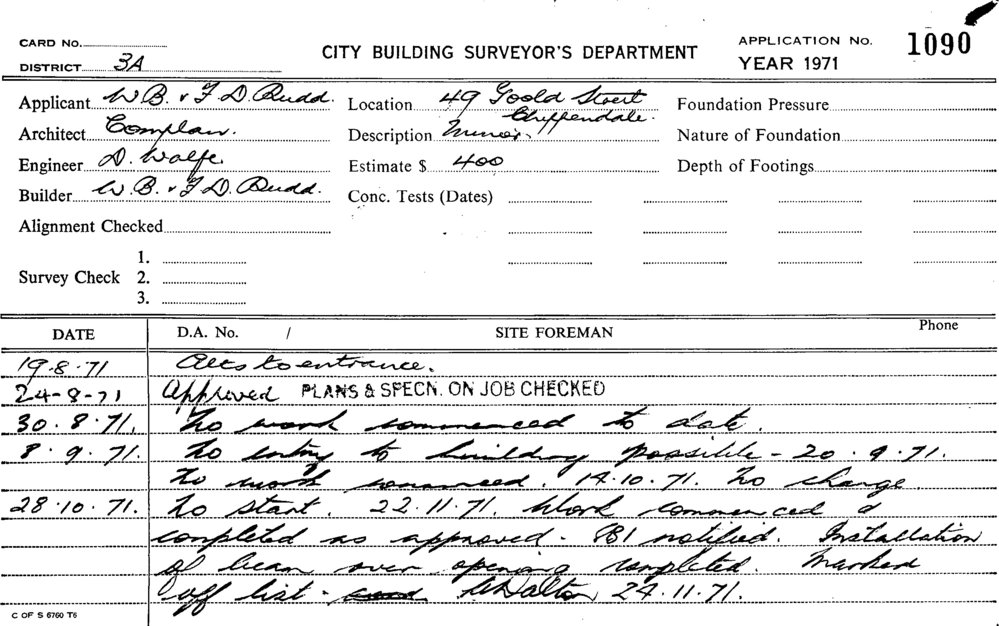 CARD No.
DISTRICT 3A
CITY BUILDING SURVEYOR'S DEPARTMENT
APPLICATION No. 1090
YEAR 1971
Applicant W B. & F D. Rudd.
Architect Complan.
Engineer D. Wolfe
Builder W. B. & F D. Rudd.
Alignment Checked
Survey Check
1.
2.
3.
Location 49 Goold Street
Chippendale.
Description Minor.
Estimate $ 400
Conc. Tests (Dates)
Foundation Pressure
Nature of Foundation
Depth of Footings
DATE D.A. No. / SITE FOREMAN Phone
19.8.71 Alts to entrance.
24-8-71 Approved PLANS & SPECN. ON JOB CHECKED
30.8.71. No work commenced to date.
8.9.71. No entry to building possible - 20.9.71.
No work commenced. 14.10.71. No change
28.10.71. No start. 22.11.71. Work commenced &
completed as approved. BI notified. Installation
of beam over opening completed. Marked
off list - 24.11.71.
C OF S 6760 T6